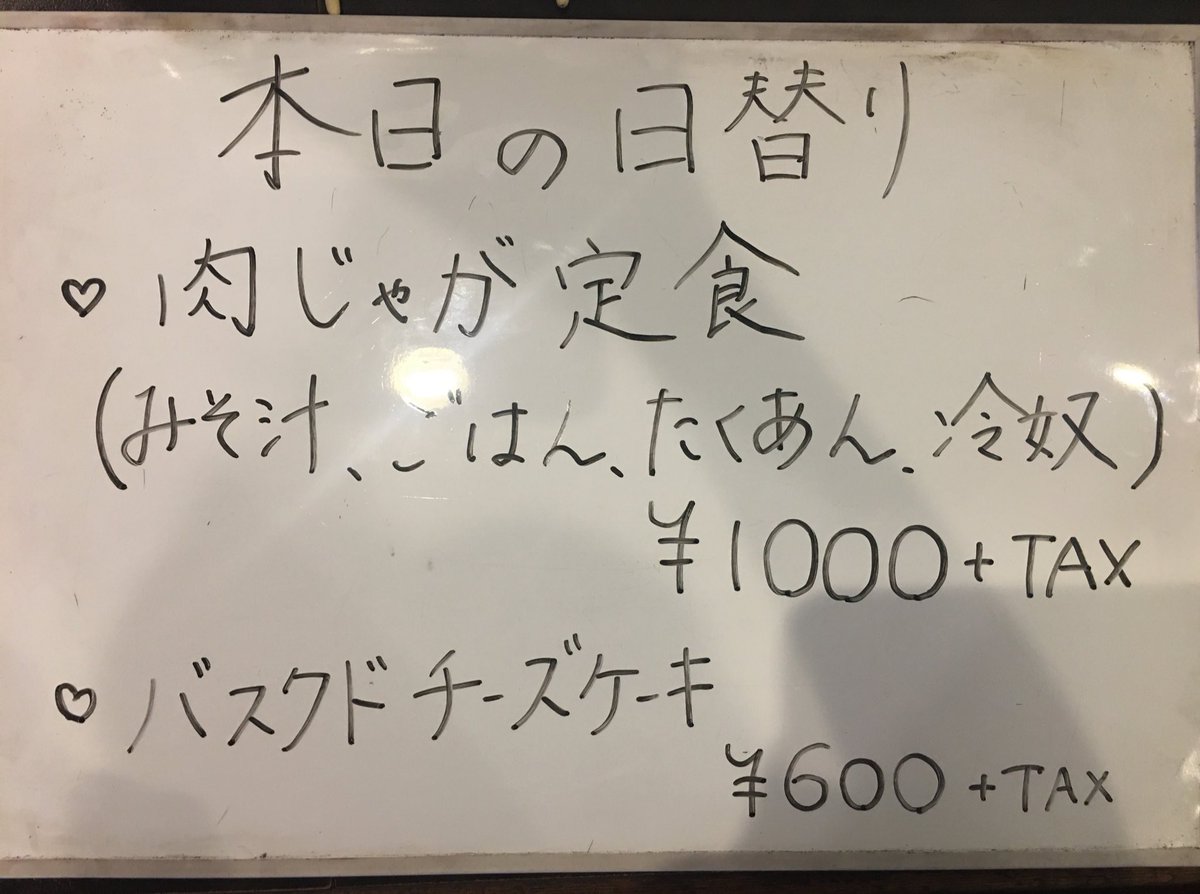 本日の日替り
♡ 肉じゃが定食
(みそ汁、ごはん、たくあん、冷奴)
¥1000+TAX
♡ バスクドチーズケーキ
¥600+TAX